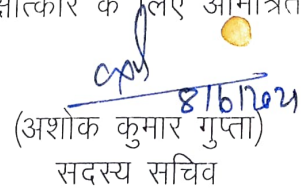 क्षात्कार के लिए आमंत्रित
(अशोक कुमार गुप्ता)
सदस्य सचिव